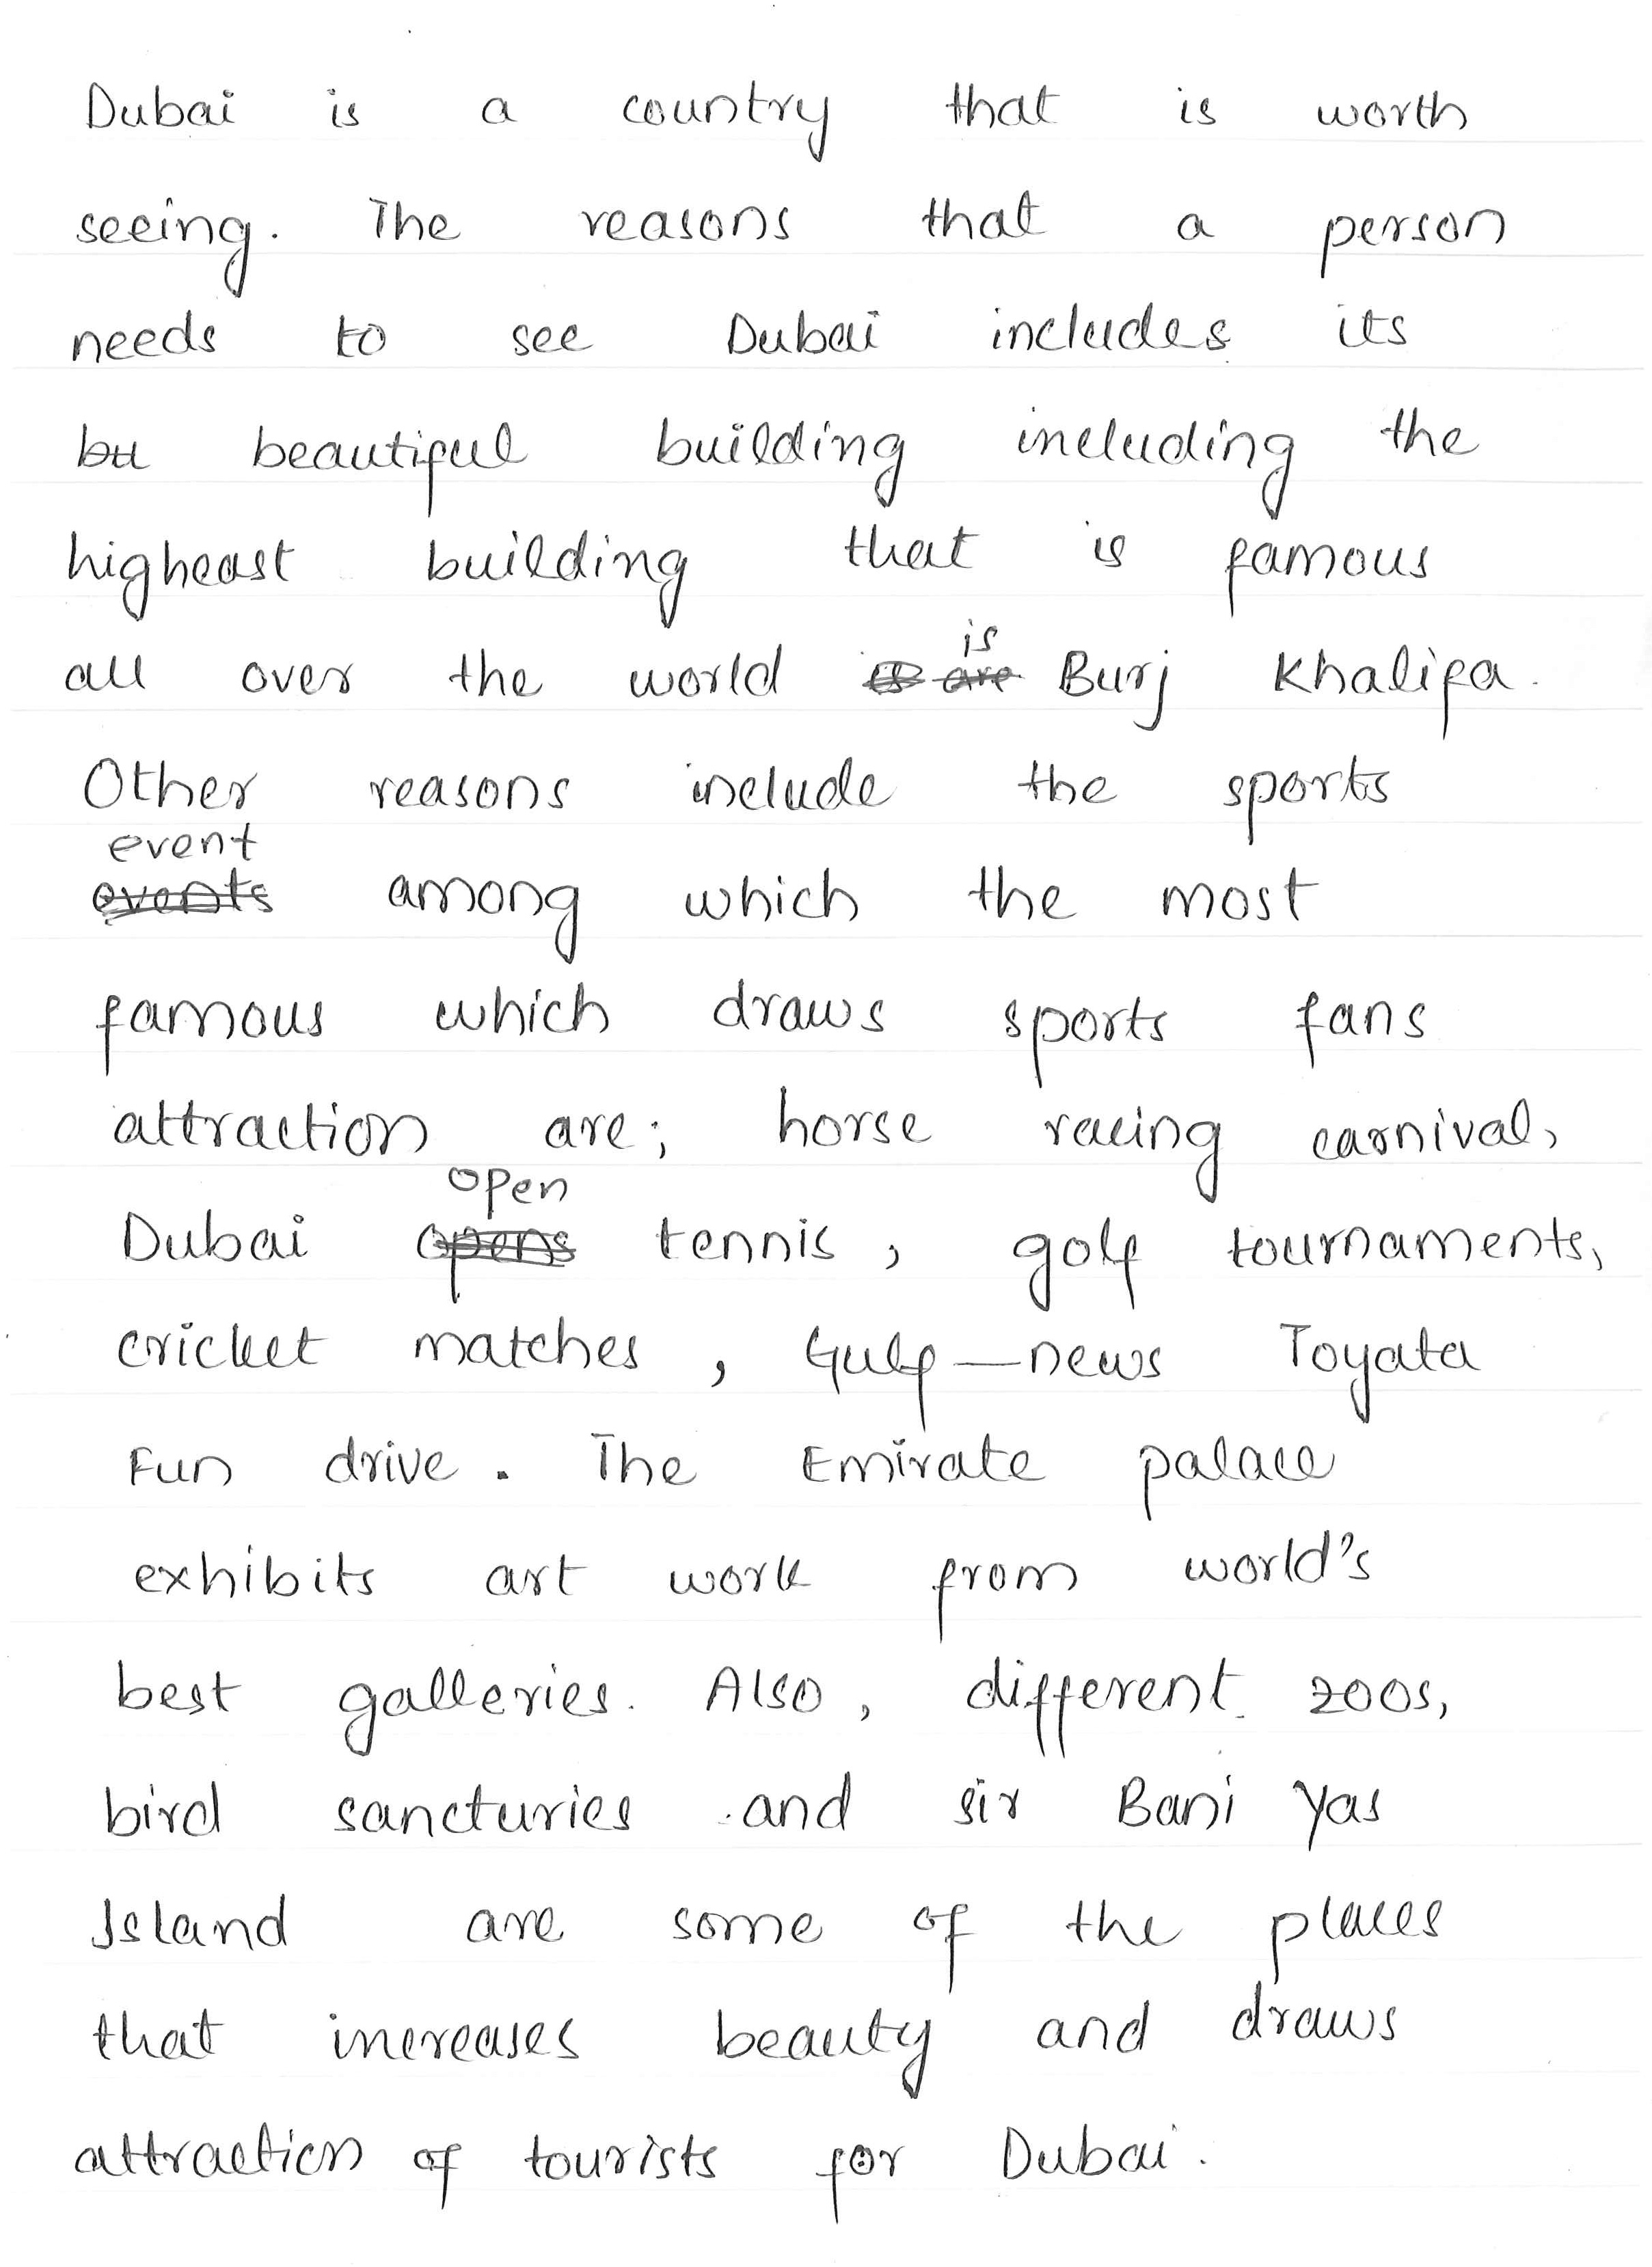 Dubai is a country that is worth
seeing. The reasons that a person
needs to see Dubai includes its
beautiful building including the
higheast building that is famous
all over the world is Burj Khalifa.
Other reasons include the sports
event among which the most
famous which draws sports fans
attraction are; horse racing carnival,
Dubai open tennis, golf tournaments,
cricket matches, Gulf-news Toyata
Fun drive. The Emirate palace
exhibits art work from world's
best galleries. Also, different zoos,
bird sancturies and sir Bani Yas
Island are some of the places
that increases beauty and draws
attraction of tourists for Dubai.